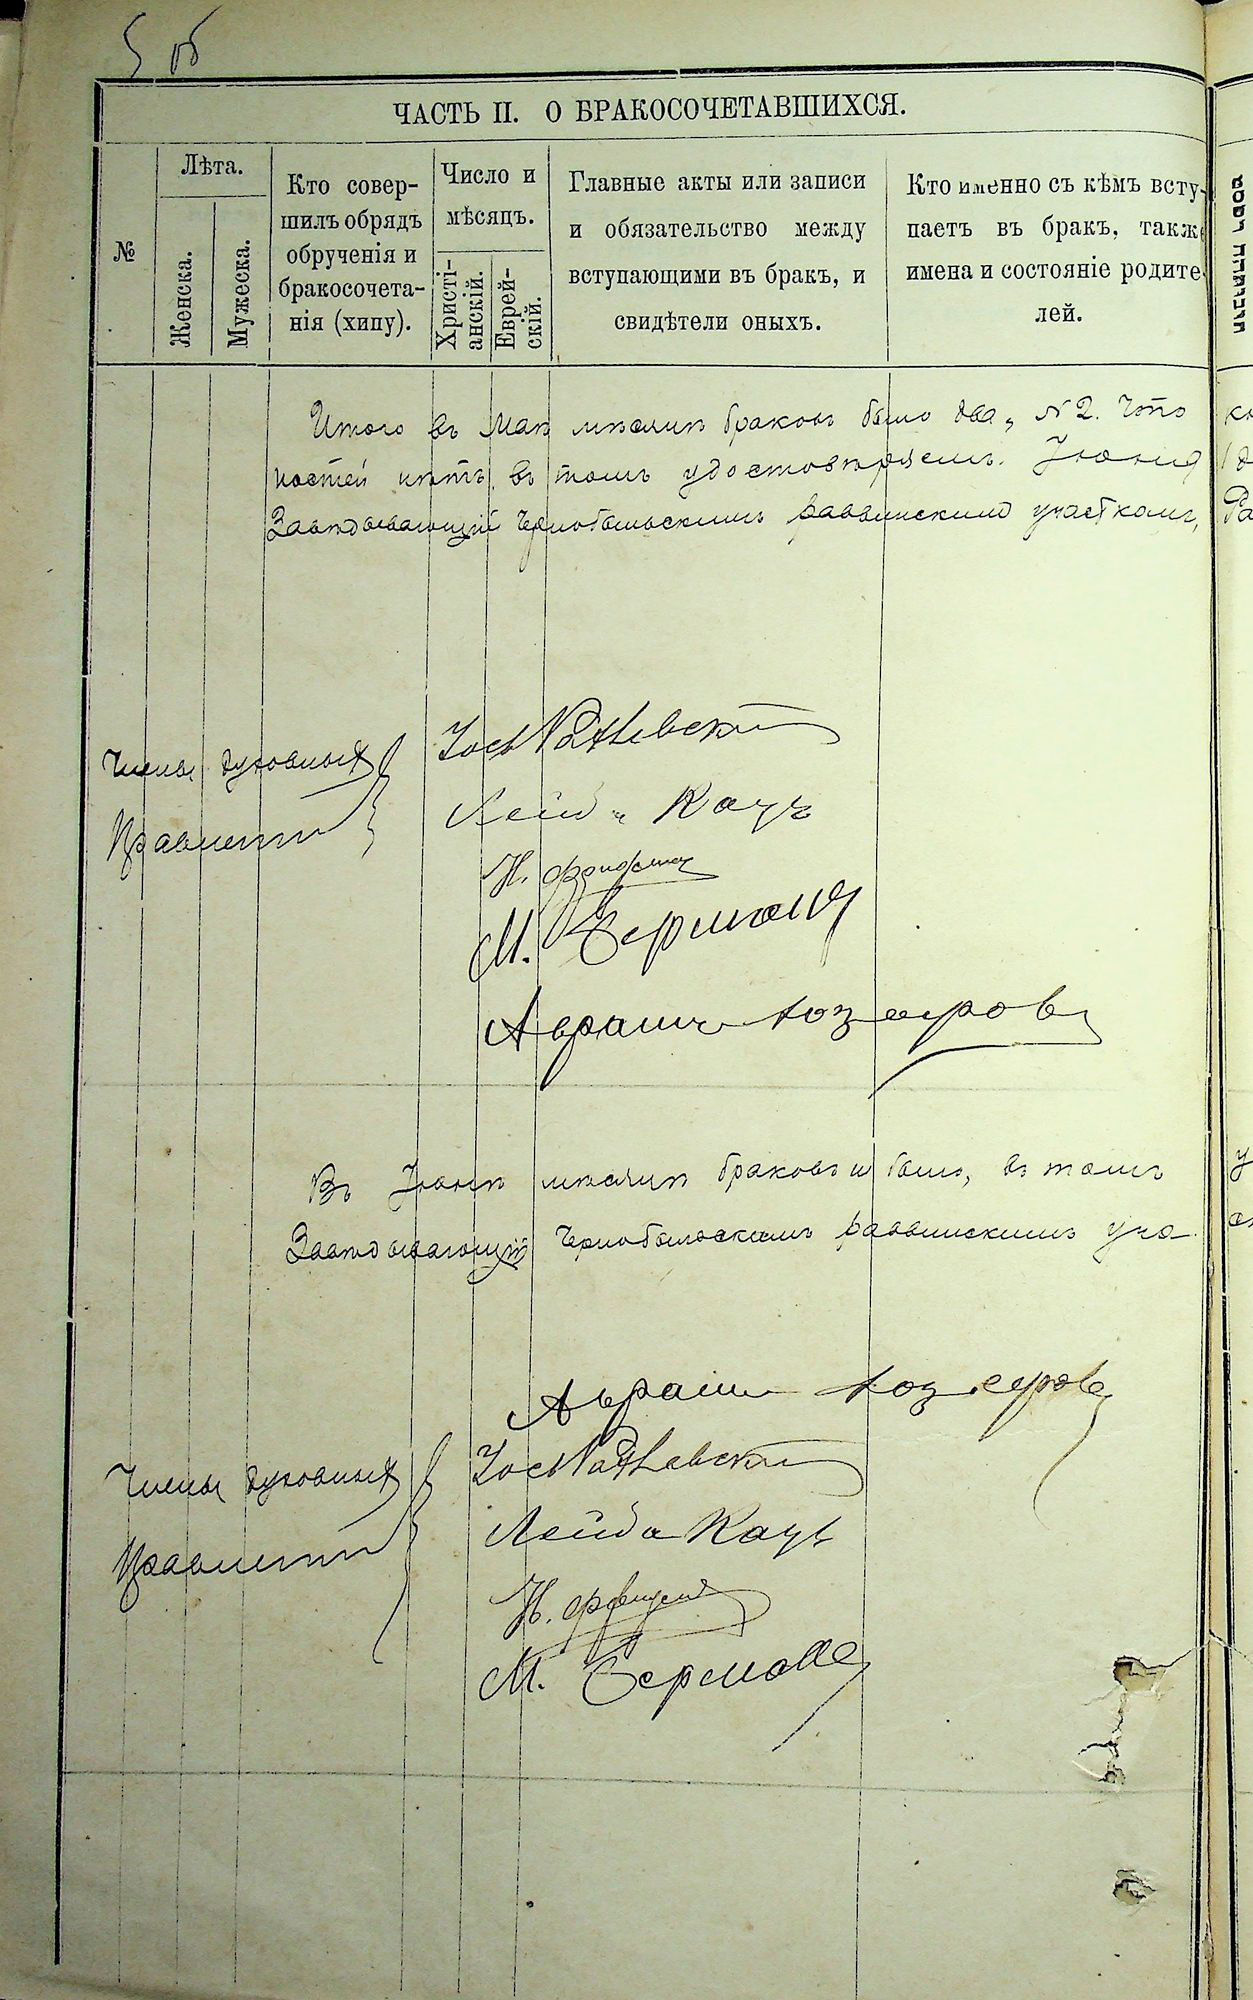 5 об
ЧАСТЬ II. О БРАКОСОЧЕТАВШИХСЯ.
№
Лѣта.
Женска.
Мужеска.
Кто совер-
шилъ обрядъ
обрученія и
бракосочета-
нія (хипу).
Число и
мѣсяцъ.
Христі-
анскій.
Еврей-
скій.
Главные акты или записи
и обязательство между
вступающими въ бракъ, и
свидѣтели оныхъ.
Кто именно съ кѣмъ всту-
паетъ въ бракъ, также
имена и состояніе родите-
лей.
Итого въ Маѣ мѣсяцѣ браковъ было два, № 2. Что
ностей нѣтъ, въ томъ удостовѣряемъ. Іюня
Завѣдывающій Чернобыльскимъ раввинскимъ участкомъ,
Члены духовныя
Правленія
Іось
Лейба Кацъ
Н.
М. Берманъ
Авраамъ
Въ Іюнѣ мѣсяцѣ браковъ не было, въ томъ
Завѣдывающій Чернобыльскимъ раввинскимъ уча-
Авраамъ
Члены духовныя
Правленія
Іос
Лейба Кацъ
Н.
М. Берманъ